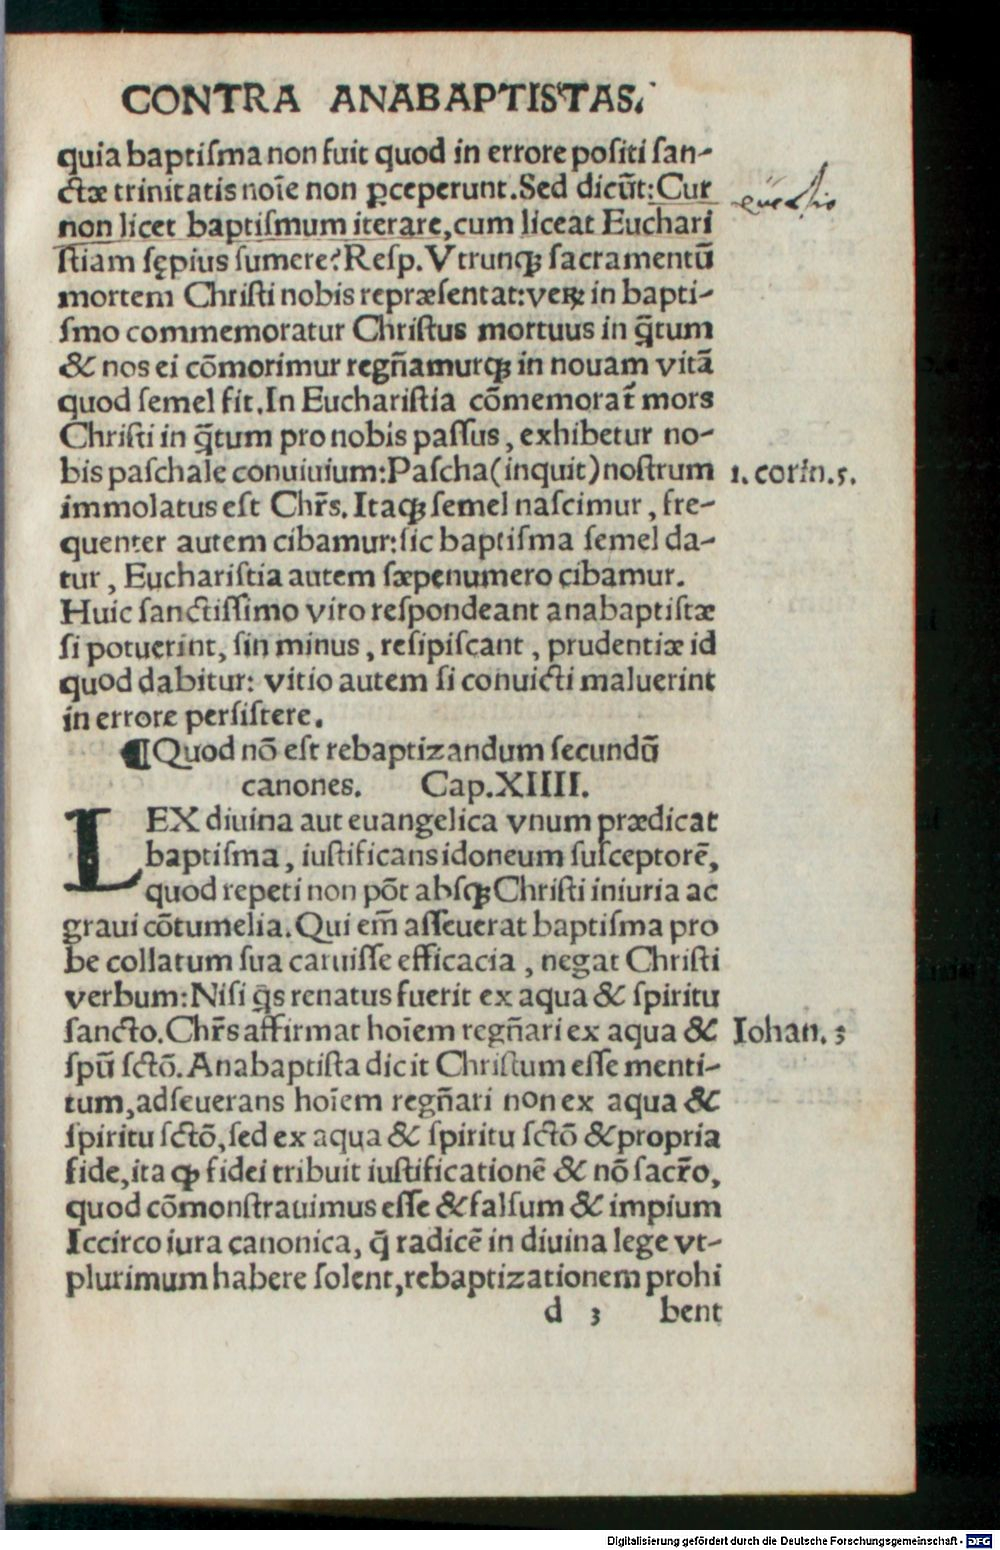 CONTRA ANABAPTISTAS.
quia baptiſma non fuit quod in errore poſiti ſan-
ctæ trinitatis noīe non ꝑceperunt. Sed dicūt: Cur
non licet baptiſmum iterare, cum liceat Euchari
ſtiam ſępius ſumere? Reſp. Vtrunqꝫ ſacramentū
mortem Chriſti nobis repræſentat: veꝝ in bapti-
ſmo commemoratur Chriſtus mortuus in q̄tum
& nos ei cōmorimur regn̄amurqꝫ in nouam vitā
quod ſemel fit. In Euchariſtia cōmemorat᷑ mors
Chriſti in q̄tum pro nobis paſſus, exhibetur no-
bis paſchale conuiuium: Paſcha (inquit) noſtrum
1. corin. 5.
immolatus eſt Chr̄s. Itaqꝫ ſemel naſcimur, fre-
quenter autem cibamur: ſic baptiſma ſemel da-
tur, Euchariſtia autem ſæpenumero cibamur.
Huic ſanctiſſimo viro reſpondeant anabaptiſtæ
ſi potuerint, ſin minus, reſipiſcant, prudentiæ id
quod dabitur: vitio autem ſi conuicti maluerint
in errore perſiſtere.
¶ Quod nō eſt rebaptizandum ſecundū
canones. Cap. XIIII.
LEX diuina aut euangelica vnum prædicat
baptiſma, iuſtificans idoneum ſuſceptorē,
quod repeti non pōt abſqꝫ Chriſti iniuria ac
graui cōtumelia. Qui em̄ aſſeuerat baptiſma pro
be collatum ſua caruiſſe efficacia, negat Chriſti
verbum: Niſi q̄s renatus fuerit ex aqua & ſpiritu
ſancto. Chr̄s affirmat hoīem regn̄ari ex aqua &
Iohan. 3
ſpū ſctō. Anabaptiſta dicit Chriſtum eſſe menti-
tum, adſeuerans hoīem regn̄ari non ex aqua &
ſpiritu ſctō, ſed ex aqua & ſpiritu ſctō & propria
fide, ita ꝙ fidei tribuit iuſtificationē & nō ſacr̄o,
quod cōmonſtrauimus eſſe & falſum & impium
Iccirco iura canonica, q̄ radicē in diuina lege vt-
plurimum habere ſolent, rebaptizationem prohi
d 3 bent
Digitalisierung gefördert durch die Deutsche Forschungsgemeinschaft - DFG